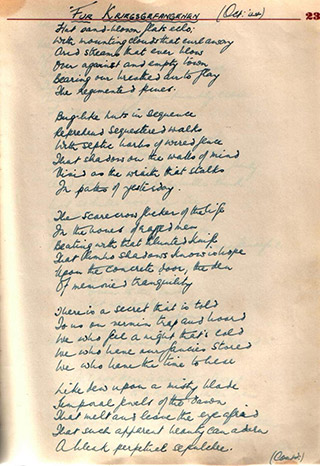 Für Kriegsgefangenen (Oct: 1941)
23
Flat sand-blown flats
With mounting clouds that curl away
And streams that ever blow
Over against and empty town
Bearing our to play
The Regimented pines.
Bug-like huts in sequence
sequestered walks
With septic barbs of wired fence
That shadow on the walls of mind
Vivid as the wraith that stalks
In paths of yesterday.
The scarecrow flicker of the life
In the bones of caged men
Beating with that blunted knife
That shadows know as hope
Upon the concrete door, the den
Of memoried tranquility
There is a secret that is told
To us on vermin trap and board
We who feel a night that's cold
We who have our fancies stored
We who have the time to hear
Like dew upon a misty blade
Temporal jewels of the dawn
That melt and leave the eye afraid
That such apparent beauty can adorn
A bleak perpetual sepulchre.
(Contd:)